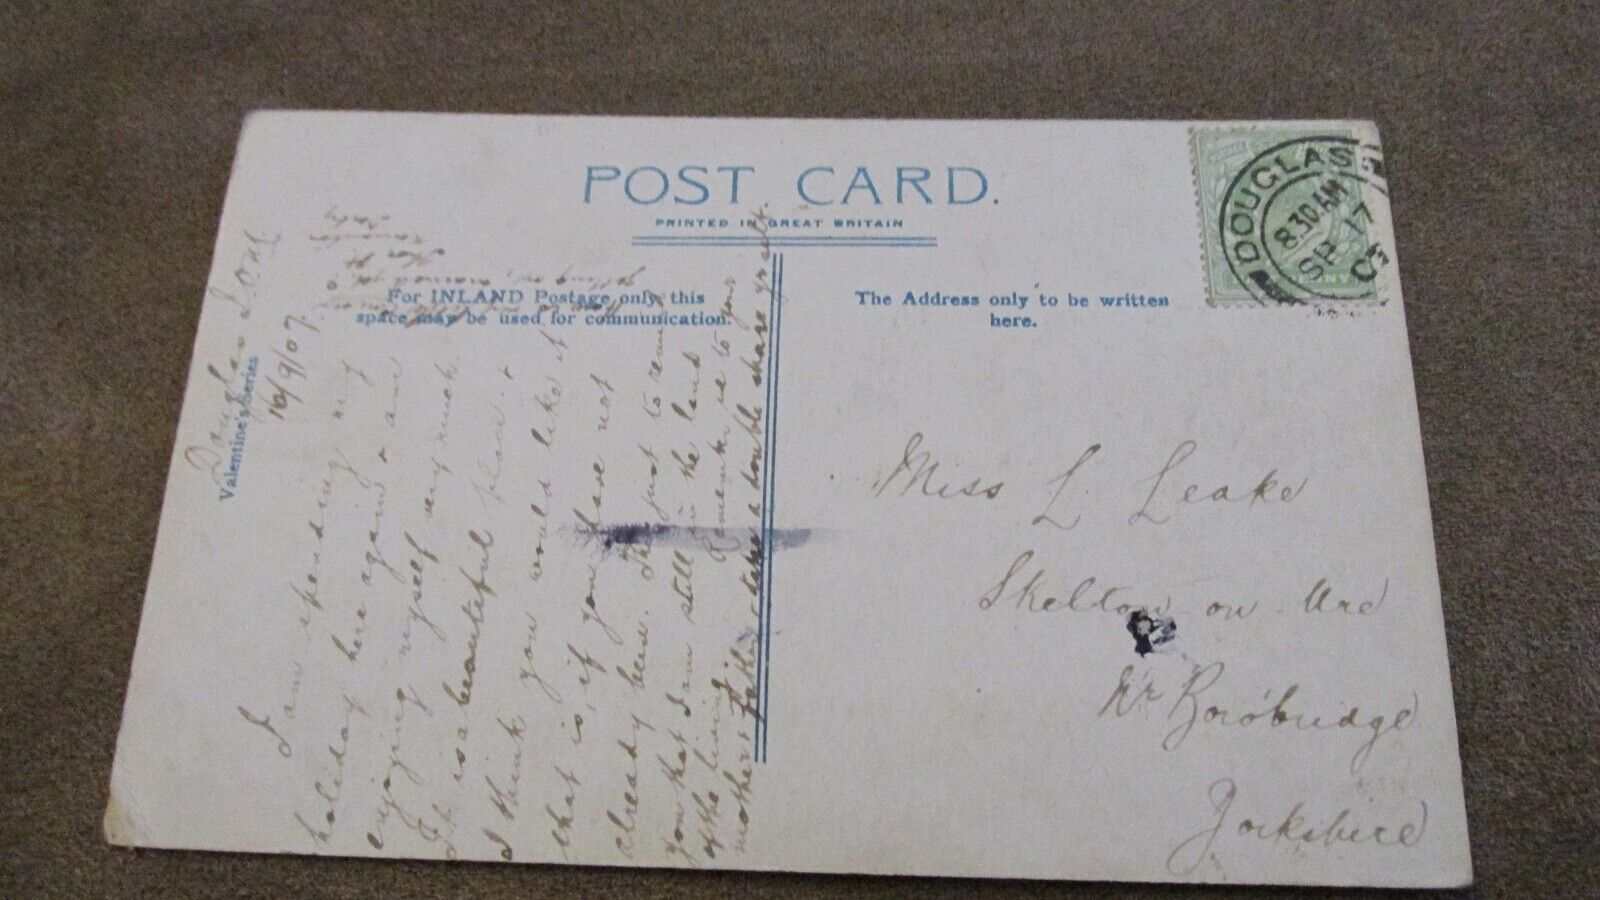 POST CARD.
PRINTED IN GREAT BRITAIN
For INLAND Postage only, this
space may be used for communication.
The Address only to be written
here.
Valentine's Series
DOUGLAS
8.30 AM
SP 17
07
Douglas I.O.M.
16/9/07.
I am spending my
holiday here again & am
enjoying myself very much.
It is a beauteful place &
I think you would like it
that is, if you have not
already been. This just to remind
you that I am still in the land
of the living. Remember me to your
mother & father & take a bon the share yourself.
Miss L Leake
Skelton-on-Ure
Nr Boro'bridge
Yorkshire